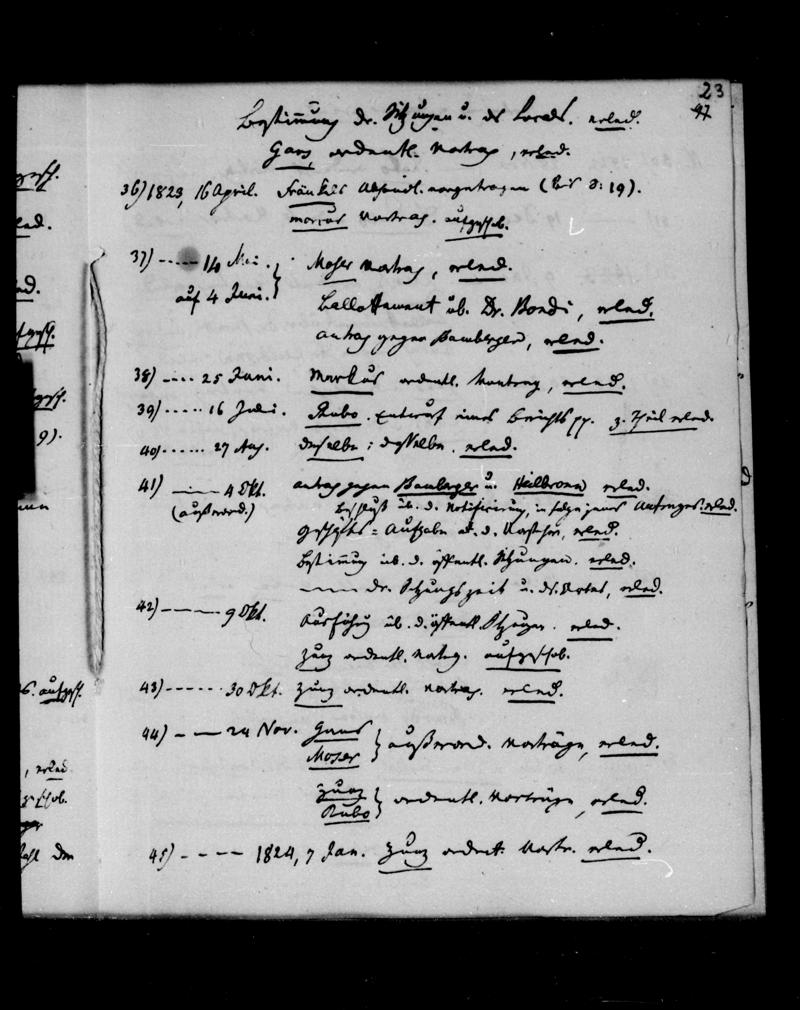 23
47
Bestimmung dr. Sitzungen u. ds Locals. erled.
Gans, ordentl. Vortrag, erled.
36) 1823, 16 April. Fränkels Abhandl. vorgetragen (bis S. 19).
Marcus Vortrag. aufgeschob.
37) ----- 14 Mai. Moser Vortrag, erled.
auf 4 Juni. Ballottement üb. Dr. Bondi, erled.
Antrag gegen Bamberger, erled.
38) ---- 25 Juni. Markus ordentl. Vortrag, erled.
39) ..... 16 Juli. Rubo. Entwurf eines Berichts pp. z. Theil erled.
40) ...... 27 Aug. derselbe: desselben. erled.
41) ---- 4 Okt. Antrag gegen Bamberger u. Heilbronn erled.
(außerord.) Beschluß üb. d. Notifizirung, in folge jenes Antrages. erled.
Geschäfts-Aufgabe a. d. Vorsteher, erled.
Bestimmung üb. d. öffentl. Sitzungen. erled.
---- dr. Sitzungszeit u. ds. Ortes, erled.
42) ---- 9 Okt. Ausführung üb. d. öffentl. Sitzungen. erled.
Zunz ordentl. Vortrag. aufgeschob.
43) ------ 30 Okt. Zunz ordentl. Vortrag. erled.
44) ---- 24 Nov. Gans
Moser } außerord. Vorträge, erled.
Zunz
Rubo } ordentl. Vorträge, erled.
45) ---- 1824, 7 Jan. Zunz ordentl. Vortr. erled.